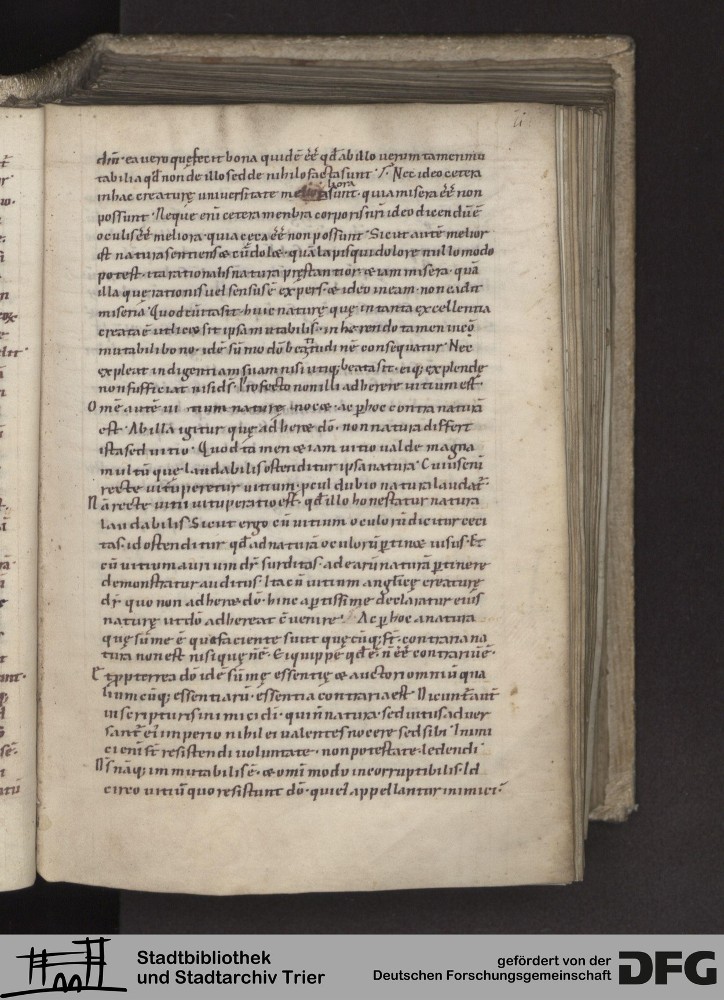 dm̄ · ea vero quę fecit bona quidē eē̄ qđ ab illo verum tamen mu
tabilia qđ non de illo sed de nihilo facta sunt · Nec ideo cetera
in hac creaturę universitate meliora sunt · quia misera eē̄ non
possunt · Neque enī cetera menbra corporis nr̄i ideo dicendū ē
oculis eē̄ meliora · quia ceca eē̄ non possunt · Sicut autē melior
est natura sentiens & cū dol& · quā lapis qui dolere nullo modo
potest · ita rationalis natura pręstantior &iam misera · quā
illa quę rationis vel sensus ē expers · & ideo in eam · non cadit
miseria · Quod cū ita sit · huic naturę quę in tanta excellentia
creata ē ut lic& sit ipsa mutabilis · inherendo tamen incō
mutabili bono · id ē sūmo dō beatitudinē consequatur · Nec
expleat indigentiam suam nisi utiq; beata sit · eiq; explendę
non sufficiat nisi ds̄ · Profecto non illi adherere vitium est ·
Omē autē vitium naturę noc& · ac p hoc contra naturā
est · Ab illa igitur quę adher& dō · non natura differt
ista sed vitio · Quo tā men &iam vitio valde magna
multū que laudabilis ostenditur ipsa natura · Cuius enī
recte vituperetur vitium · pcul dubio natura laudat̄
Nā recte vitii vituperatio est · qđ illo honestatur natura
laudabilis · Sicut ergo cū vitium oculorū dicitur ceci
tas · id ostenditur qđ ad naturā oculorū ptin& visus · Et
cū vitium aurium dr̄ surditas · ad earū naturā ptinere
demonstratur auditus · Ita cū vitium anglicę creaturę
dr̄ quo non adher& dō · hinc aptissime declaratur eius
naturę ut dō adhereat cvenire · Ac p hoc a natura
quę sūme ē qua faciente sunt quęcūq; st̄ · contraria na
tura non est nisi quę nē · Ei quippe qđ ē · n eē̄ contrariū ē ·
Et ppterea dō id ē sūmę essentię & auctori omniū qua
liumcūq; essentiarū · essentia contraria est · Dicunt aut̄
in scripturis inimici di · qui n natura · sed vitiis adver
sant̄ ei imperio nihil ei valentes nocere sed sibi · Inimi
ci enī st̄ resistendi voluntate · non potestate ledendi ·
Ds̄ nāq; immutabilis ē · & omī modo incorruptibilis · Id
circo vitiū quo resistunt dō · qui ei appellantur inimici ·
Stadtbibliothek
und Stadtarchiv Trier
gefördert von der
Deutschen Forschungsgemeinschaft
DFG